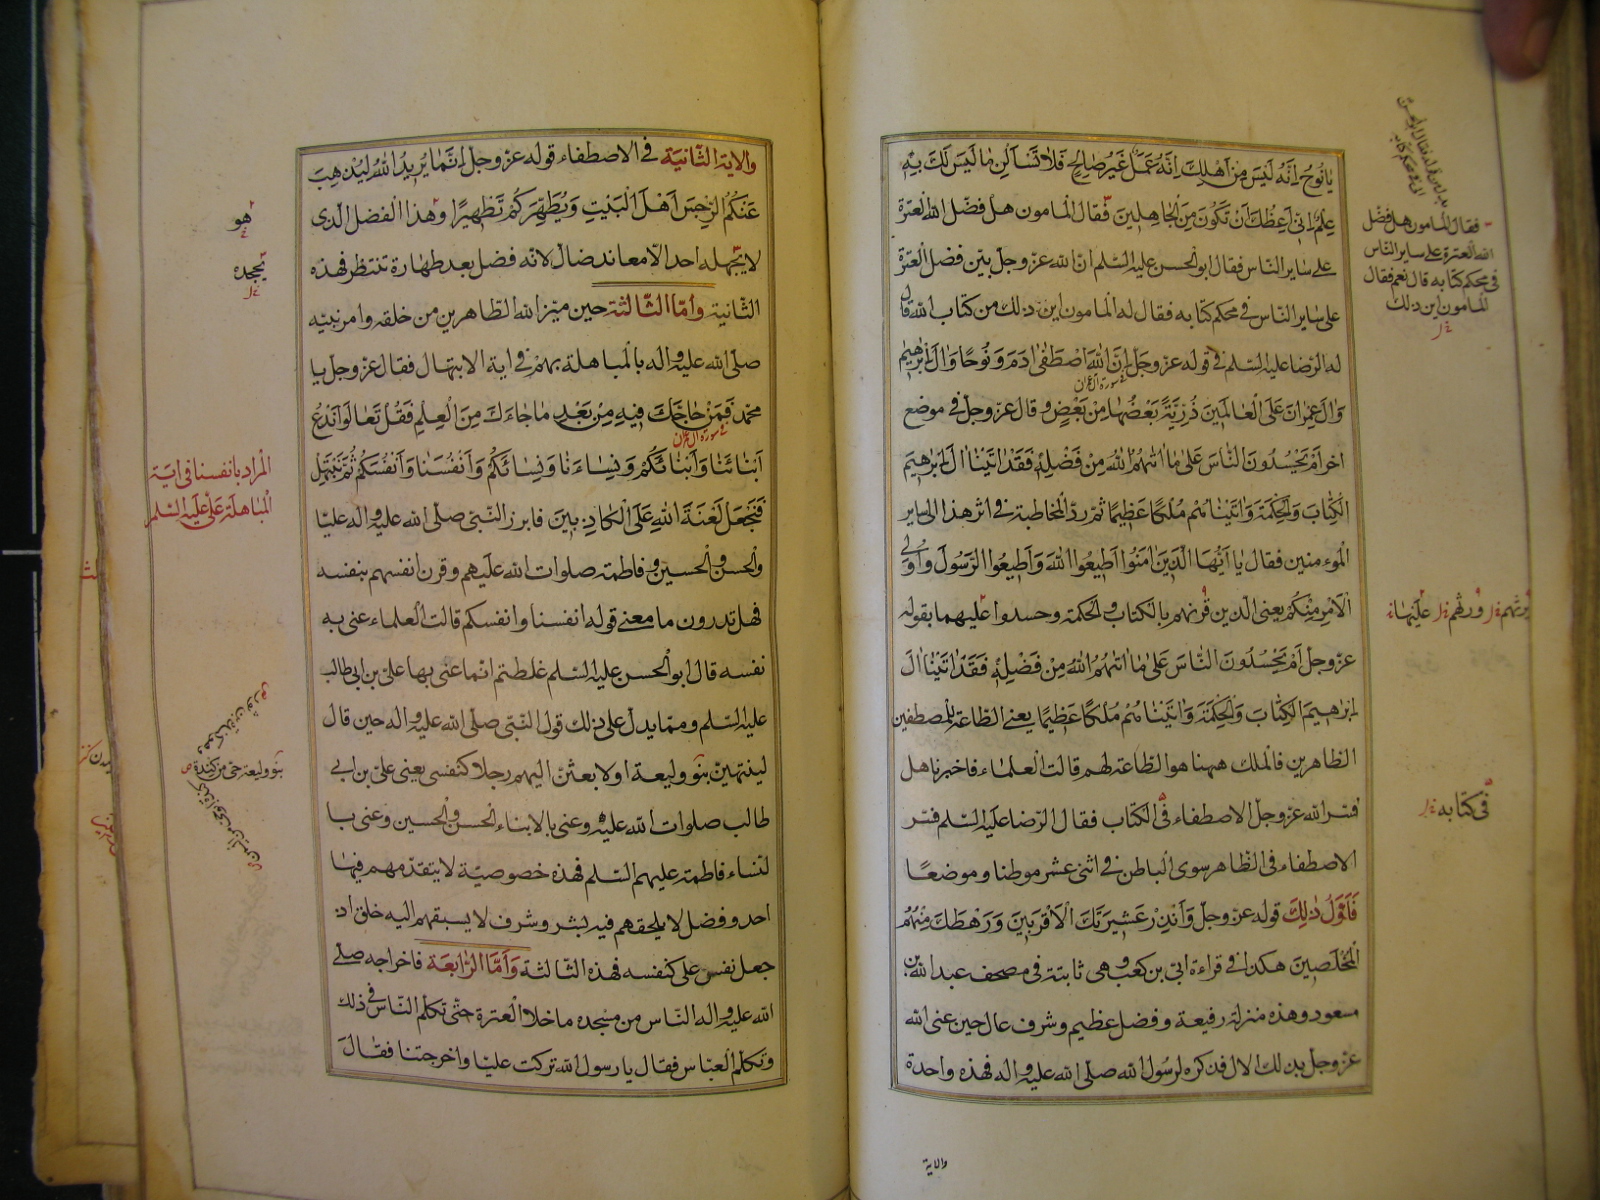 يا نوح انه ليس من اهلك انه عمل غير صالح فلا تسألن ما ليس لك به
علم انى اعظك ان تكون من الجاهلين فقال المامون هل فضل الله العترة
على ساير الناس فقال ابو الحسن عليه السلم ان الله عز وجل بين فضل العترة
على ساير الناس فى محكم كتابه فقال له المامون اين ذلك من كتاب الله قال
له الرضا عليه السلم فى قوله عز وجل ان الله اصطفى ادم ونوحا وال ابرهيم
سورة ال عمران
وال عمران على العالمين ذرية بعضها من بعض وقال عز وجل فى موضع
اخر ام يحسدون الناس على ما اتيهم الله من فضله فقد اتينا ال ابرهيم
الكتاب والحكمة واتيناهم ملكا عظيما ثم رد المخاطبة فى اثر هذا الى ساير
المومنين فقال يا ايها الذين امنوا اطيعوا الله واطيعوا الرسول واولى
الامر منكم يعنى الذين قرنهم بالكتاب والحكمة وحسدوا عليهما بقوله
عز وجل ام يحسدون الناس على ما اتيهم الله من فضله فقد اتينا ال
ابرهيم الكتاب والحكمة واتيناهم ملكا عظيما يعنى الطاعة للمصطفين
الطاهرين فالملك ههنا هو الطاعة لهم قالت العلماء فاخبرنا هل
فسر الله عز وجل الاصطفاء فى الكتاب فقال الرضا عليه السلم فسر
الاصطفاء فى الظاهر سوى الباطن فى اثنى عشر موطنا وموضعا
فاول ذلك قوله عز وجل وانذر عشيرتك الاقربين ورهطك منهم
المخلصين هكذا فى قراءة ابى بن كعب وهى ثابتة فى مصحف عبد الله بن
مسعود وهذه منزلة رفيعة وفضل عظيم وشرف عال حين عنى الله
عز وجل بذلك الال فذكره لرسول الله صلى الله عليه واله فهذه واحدة
والاية
فقال المامون هل فضل
الله العترة على ساير الناس
فى محكم كتابه قال نعم فقال
المامون اين ذلك
ورثهم
عليها
فى كتابه
والاية الثانية فى الاصطفاء قوله عز وجل انما يريد الله ليذهب
عنكم الرجس اهل البيت ويطهركم تطهيرا وهذا الفضل الذى
لا يجهله احد الا معاند ضال لانه فضل بعد طهارة تنتظر فهذه
الثانية واما الثالثة حين ميز الله الطاهرين من خلقه وامر نبيه
صلى الله عليه واله بالمباهلة بهم فى اية الابتهال فقال عز وجل يا
محمد فمن حاجك فيه من بعد ما جاءك من العلم فقل تعالوا ندع
سورة ال عمران
ابنائنا وابنائكم ونساءنا ونسائكم وانفسنا وانفسكم ثم نبتهل
فنجعل لعنة الله على الكاذبين فابرز النبى صلى الله عليه واله عليا
والحسن والحسين وفاطمة صلوات الله عليهم وقرن انفسهم بنفسه
فهل تدرون ما معنى قوله انفسنا وانفسكم قالت العلماء عنى به
نفسه قال ابو الحسن عليه السلم غلطتم انما عنى بها على بن ابى طالب
عليه السلم ومما يدل على ذلك قول النبى صلى الله عليه واله حين قال
لينتهين بنو وليعة او لابعثن اليهم رجلا كنفسى يعنى على بن ابى
طالب صلوات الله عليه وعنى بالابناء الحسن والحسين وعنى با
لنساء فاطمة عليهم السلم فهذه خصوصية لا يتقدمهم فيها
احد وفضل لا يلحقهم فيه بشر وشرف لا يسبقهم اليه خلق اذ
جعل نفس على كنفسه فهذه الثالثة واما الرابعة فاخراجه صلى
الله عليه واله الناس من مسجده ما خلا العترة حتى تكلم الناس فى ذلك
وتكلم العباس فقال يا رسول الله تركت عليا واخرجتنا فقال
هو
يجحده
المراد بانفسنا فى اية
المباهلة على عليه السلم
بنو وليعة حى من كندة